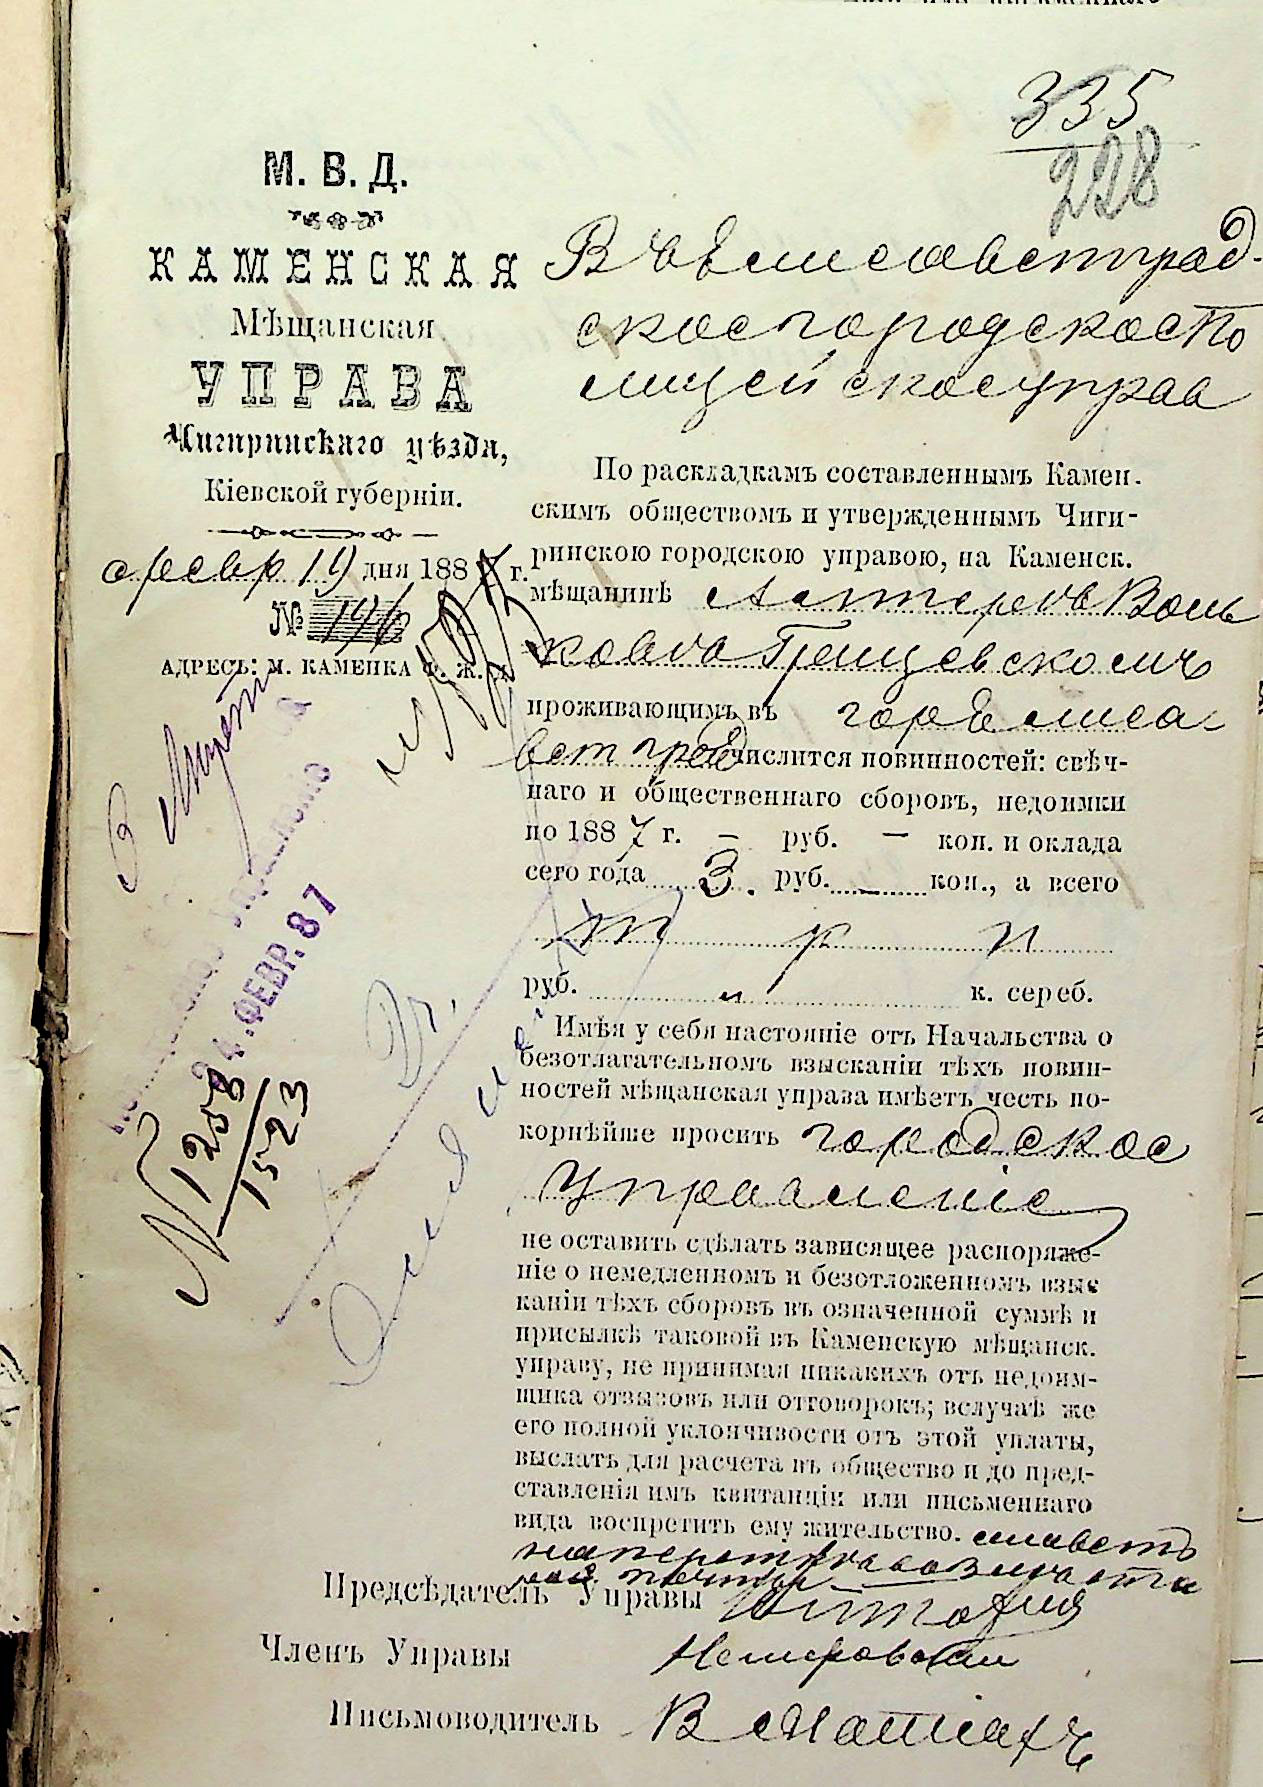 335
228
М. В. Д.
КАМЕНСКАЯ
Мѣщанская
УПРАВА
Чигиринскаго уѣзда,
Кіевской губерніи.
февр 19 дня 1887 г.
№ 146
АДРЕСЪ: М. КАМЕНКА Ф. Ж. Д.
Въ Елисаветград-
ское городское По
лицейское управ
По раскладкамъ составленнымъ Камен-
скимъ обществомъ и утвержденнымъ Чиги-
ринскою городскою управою, на Каменск.
мѣщанинѣ Вонь
ковѣ Грищевскомъ
проживающимъ въ гор Елиса
ветград числится повинностей: свѣч-
наго и общественнаго сборовъ, недоимки
по 1887 г. — руб. — коп. и оклада
сего года 3. руб. — коп., а всего
три
руб. „ к. сереб.
Имѣя у себя настояніе отъ Начальства о
безотлагательномъ взысканіи тѣхъ повин-
ностей мѣщанская управа имѣетъ честь по-
корнѣйше просить городское
Управленіе
не оставить сдѣлать зависящее распоряже-
ніе о немедленномъ и безотложенномъ взыс
каніи тѣхъ сборовъ въ означенной суммѣ и
присылкѣ таковой въ Каменскую мѣщанск.
управу, не принимая никакихъ отъ недоим-
щика отзывовъ или отговорокъ; вслучаѣ же
его полной уклончивости отъ этой уплаты,
выслать для расчета въ общество и до пред-
ставленія имъ квитанціи или письменнаго
вида воспретить ему жительство.
Предсѣдатель Управы
Членъ Управы Немировскій
Письмоводитель
24 ФЕВР. 87
№ 1208
1523